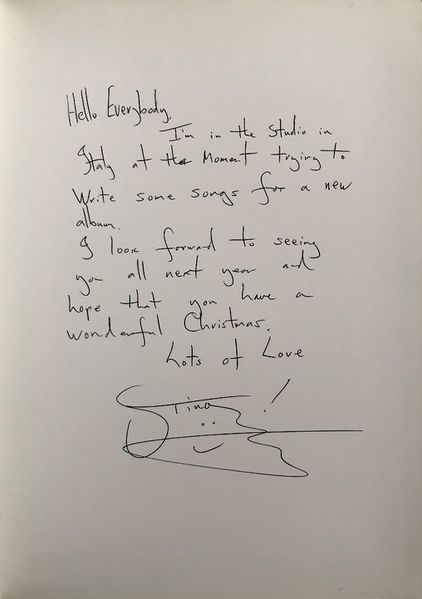 Hello Everybody,
I'm in the studio in
Italy at the Moment trying to
Write some songs for a new
album.
I look forward to seeing
you all next year and
hope that you have a
wonderful Christmas.
Lots of Love
Sting!